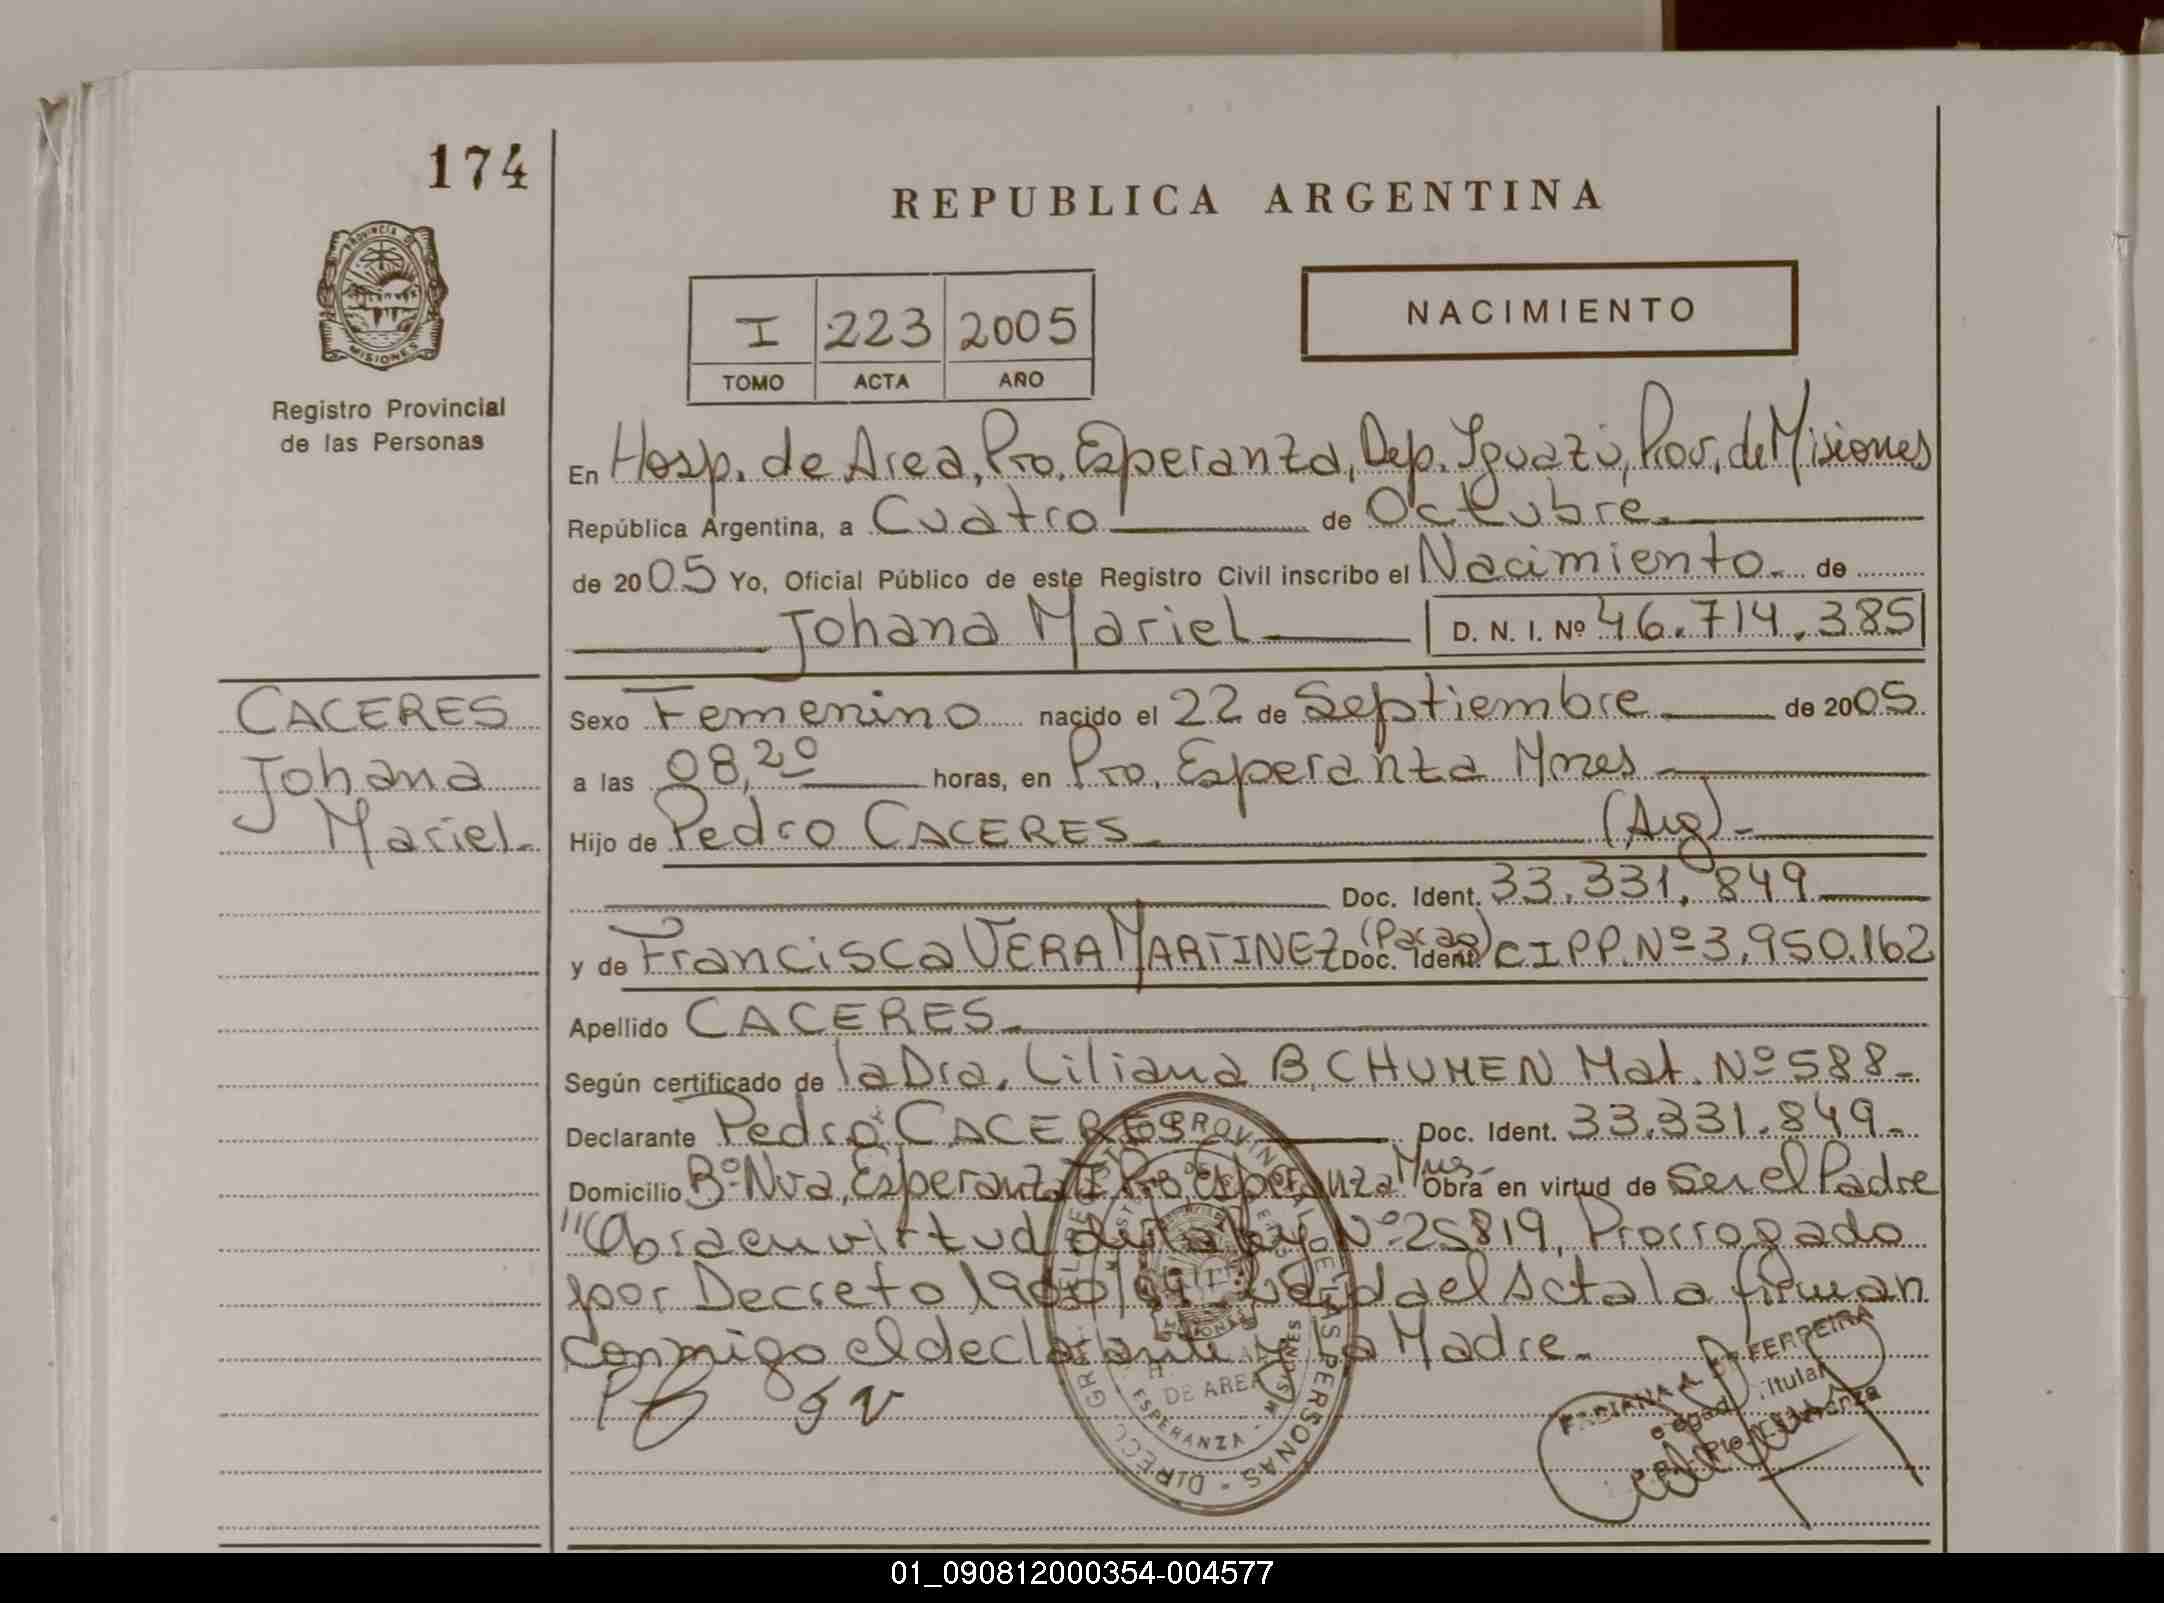 174
REPUBLICA ARGENTINA
PROVINCIA DE
MISIONES
Registro Provincial
de las Personas
I 223 2005
TOMO ACTA AÑO
NACIMIENTO
En Hosp. de Area, Pto. Esperanza, Dep. Iguazú, Prov. de Misiones
República Argentina, a Cuatro de Octubre.
de 2005 Yo, Oficial Público de este Registro Civil inscribo el Nacimiento. de
Johana Mariel D. N. I. Nº 46.714.385
CACERES
Johana
Mariel.
Sexo Femenino nacido el 22 de Septiembre de 2005
a las 08,20 horas, en Pto. Esperanza Mnes
Hijo de Pedro CACERES (Arg)
Doc. Ident. 33.331.849
y de Francisca VERA MARTINEZ (Parag) Doc. Ident. C I P P. Nº 3.950.162
Apellido CACERES
Según certificado de la Dra. Liliana B. CHUMEN Mat. Nº 588
Declarante Pedro CACERES Doc. Ident. 33.331.849
Domicilio Bº Nva, Esperanza Pto. Esperanza Mns Obra en virtud de ser el Padre
"Obra en virtud de la Ley Nº 25819, Prorrogado
por Decreto Leida el Acta la firman
conmigo el declarante y la Madre.
DE AREA
ESPERANZA - MISIONES
FABIANA A. FERREIRA
Titular
Pto. Esperanza
01_090812000354-004577